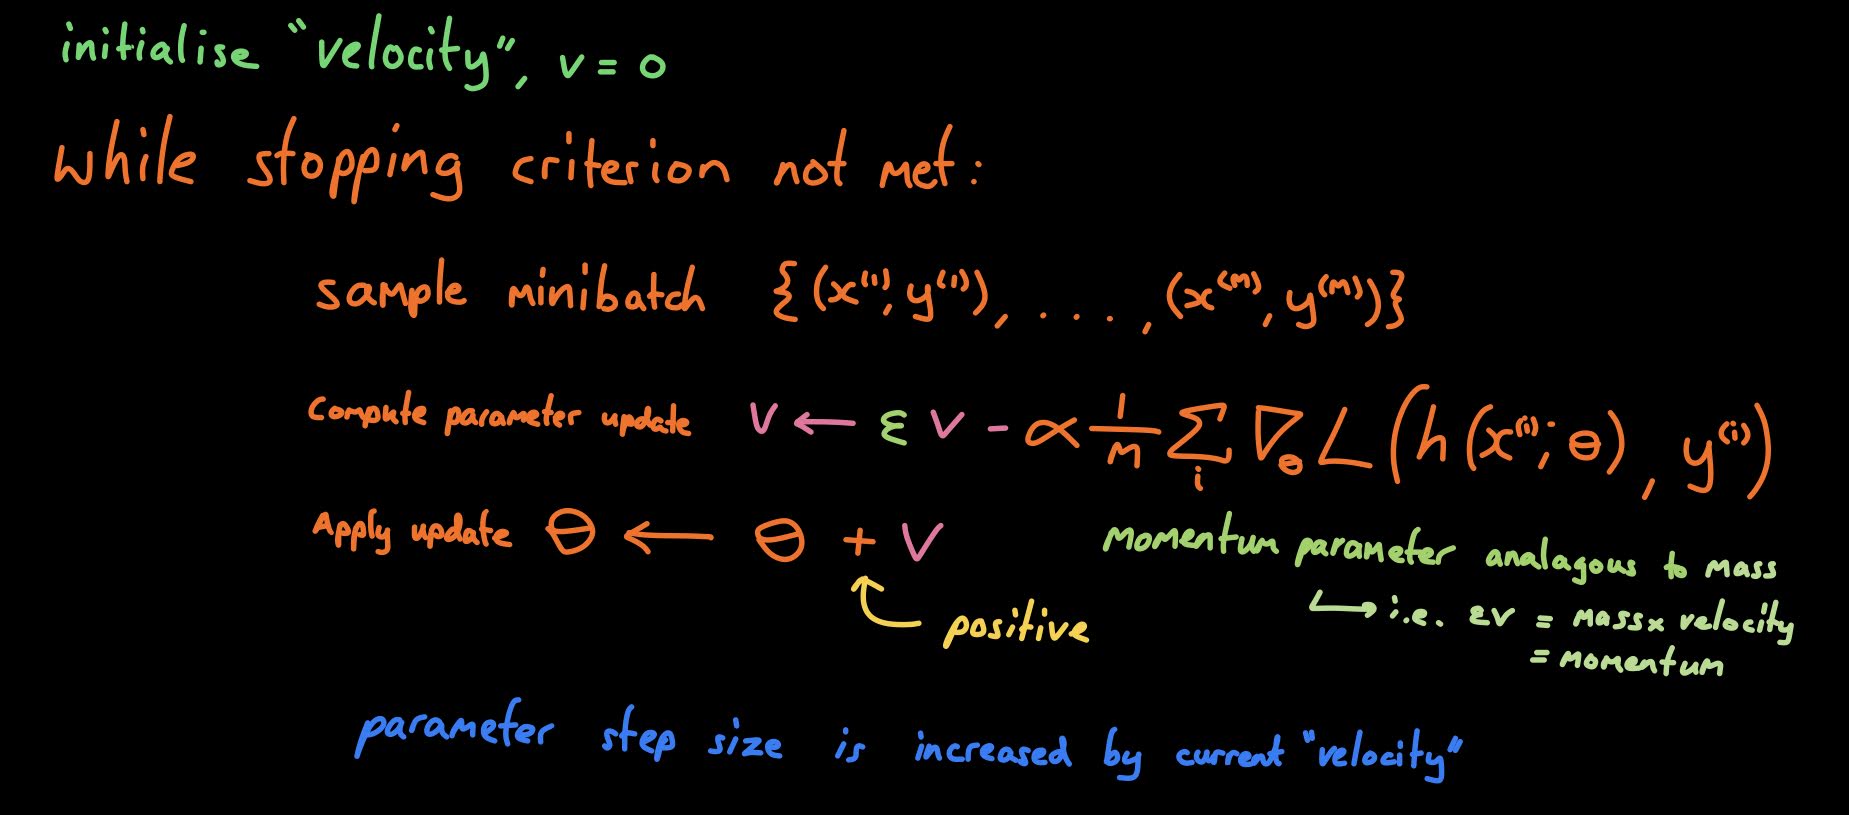 initialise "velocity", v = 0
while stopping criterion not met:
sample minibatch {(x⁽¹⁾, y⁽¹⁾), . . . , (x⁽ᵐ⁾, y⁽ᵐ⁾)}
Compute parameter update v ← εv - α 1/m Σᵢ ∇_θ L(h(x⁽ⁱ⁾; θ), y⁽ⁱ⁾)
Apply update θ ← θ + v
positive
momentum parameter analagous to mass
↳ i.e. εv = mass x velocity
= momentum
parameter step size is increased by current "velocity"